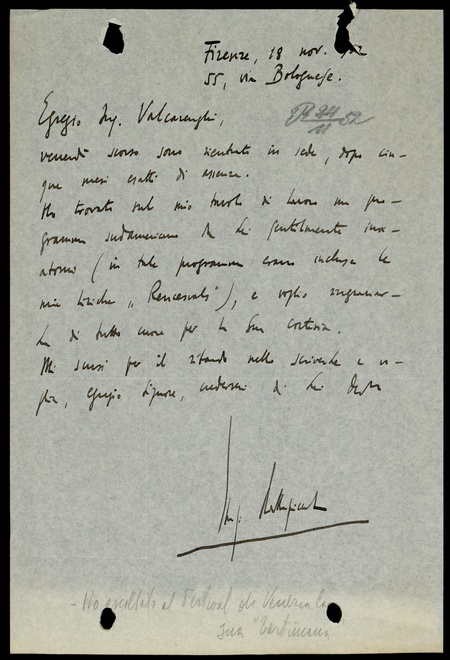 Firenze, 18 nov. 52
55, via Bolognese.
Egregio Ing. Valcarenghi,
R 24/11 52
venerdì scorso sono rientrato in sede, dopo cin-
que mesi esatti di assenza.
Ho trovato sul mio tavolo di lavoro un pro-
gramma sudamericano da Lei gentilmente invi-
atomi (in tale programma erano incluse le
mie liriche "Rencesvals"), e voglio ringraziar-
La di tutto cuore per la Sua cortesia.
Mi scusi per il ritardo nello scriverle e vo-
glia, egregio Signore, credermi di Lei devmo
Luigi Dallapiccola
- Ho ascoltato al Festival di Venezia la
sua "Tartiniana"